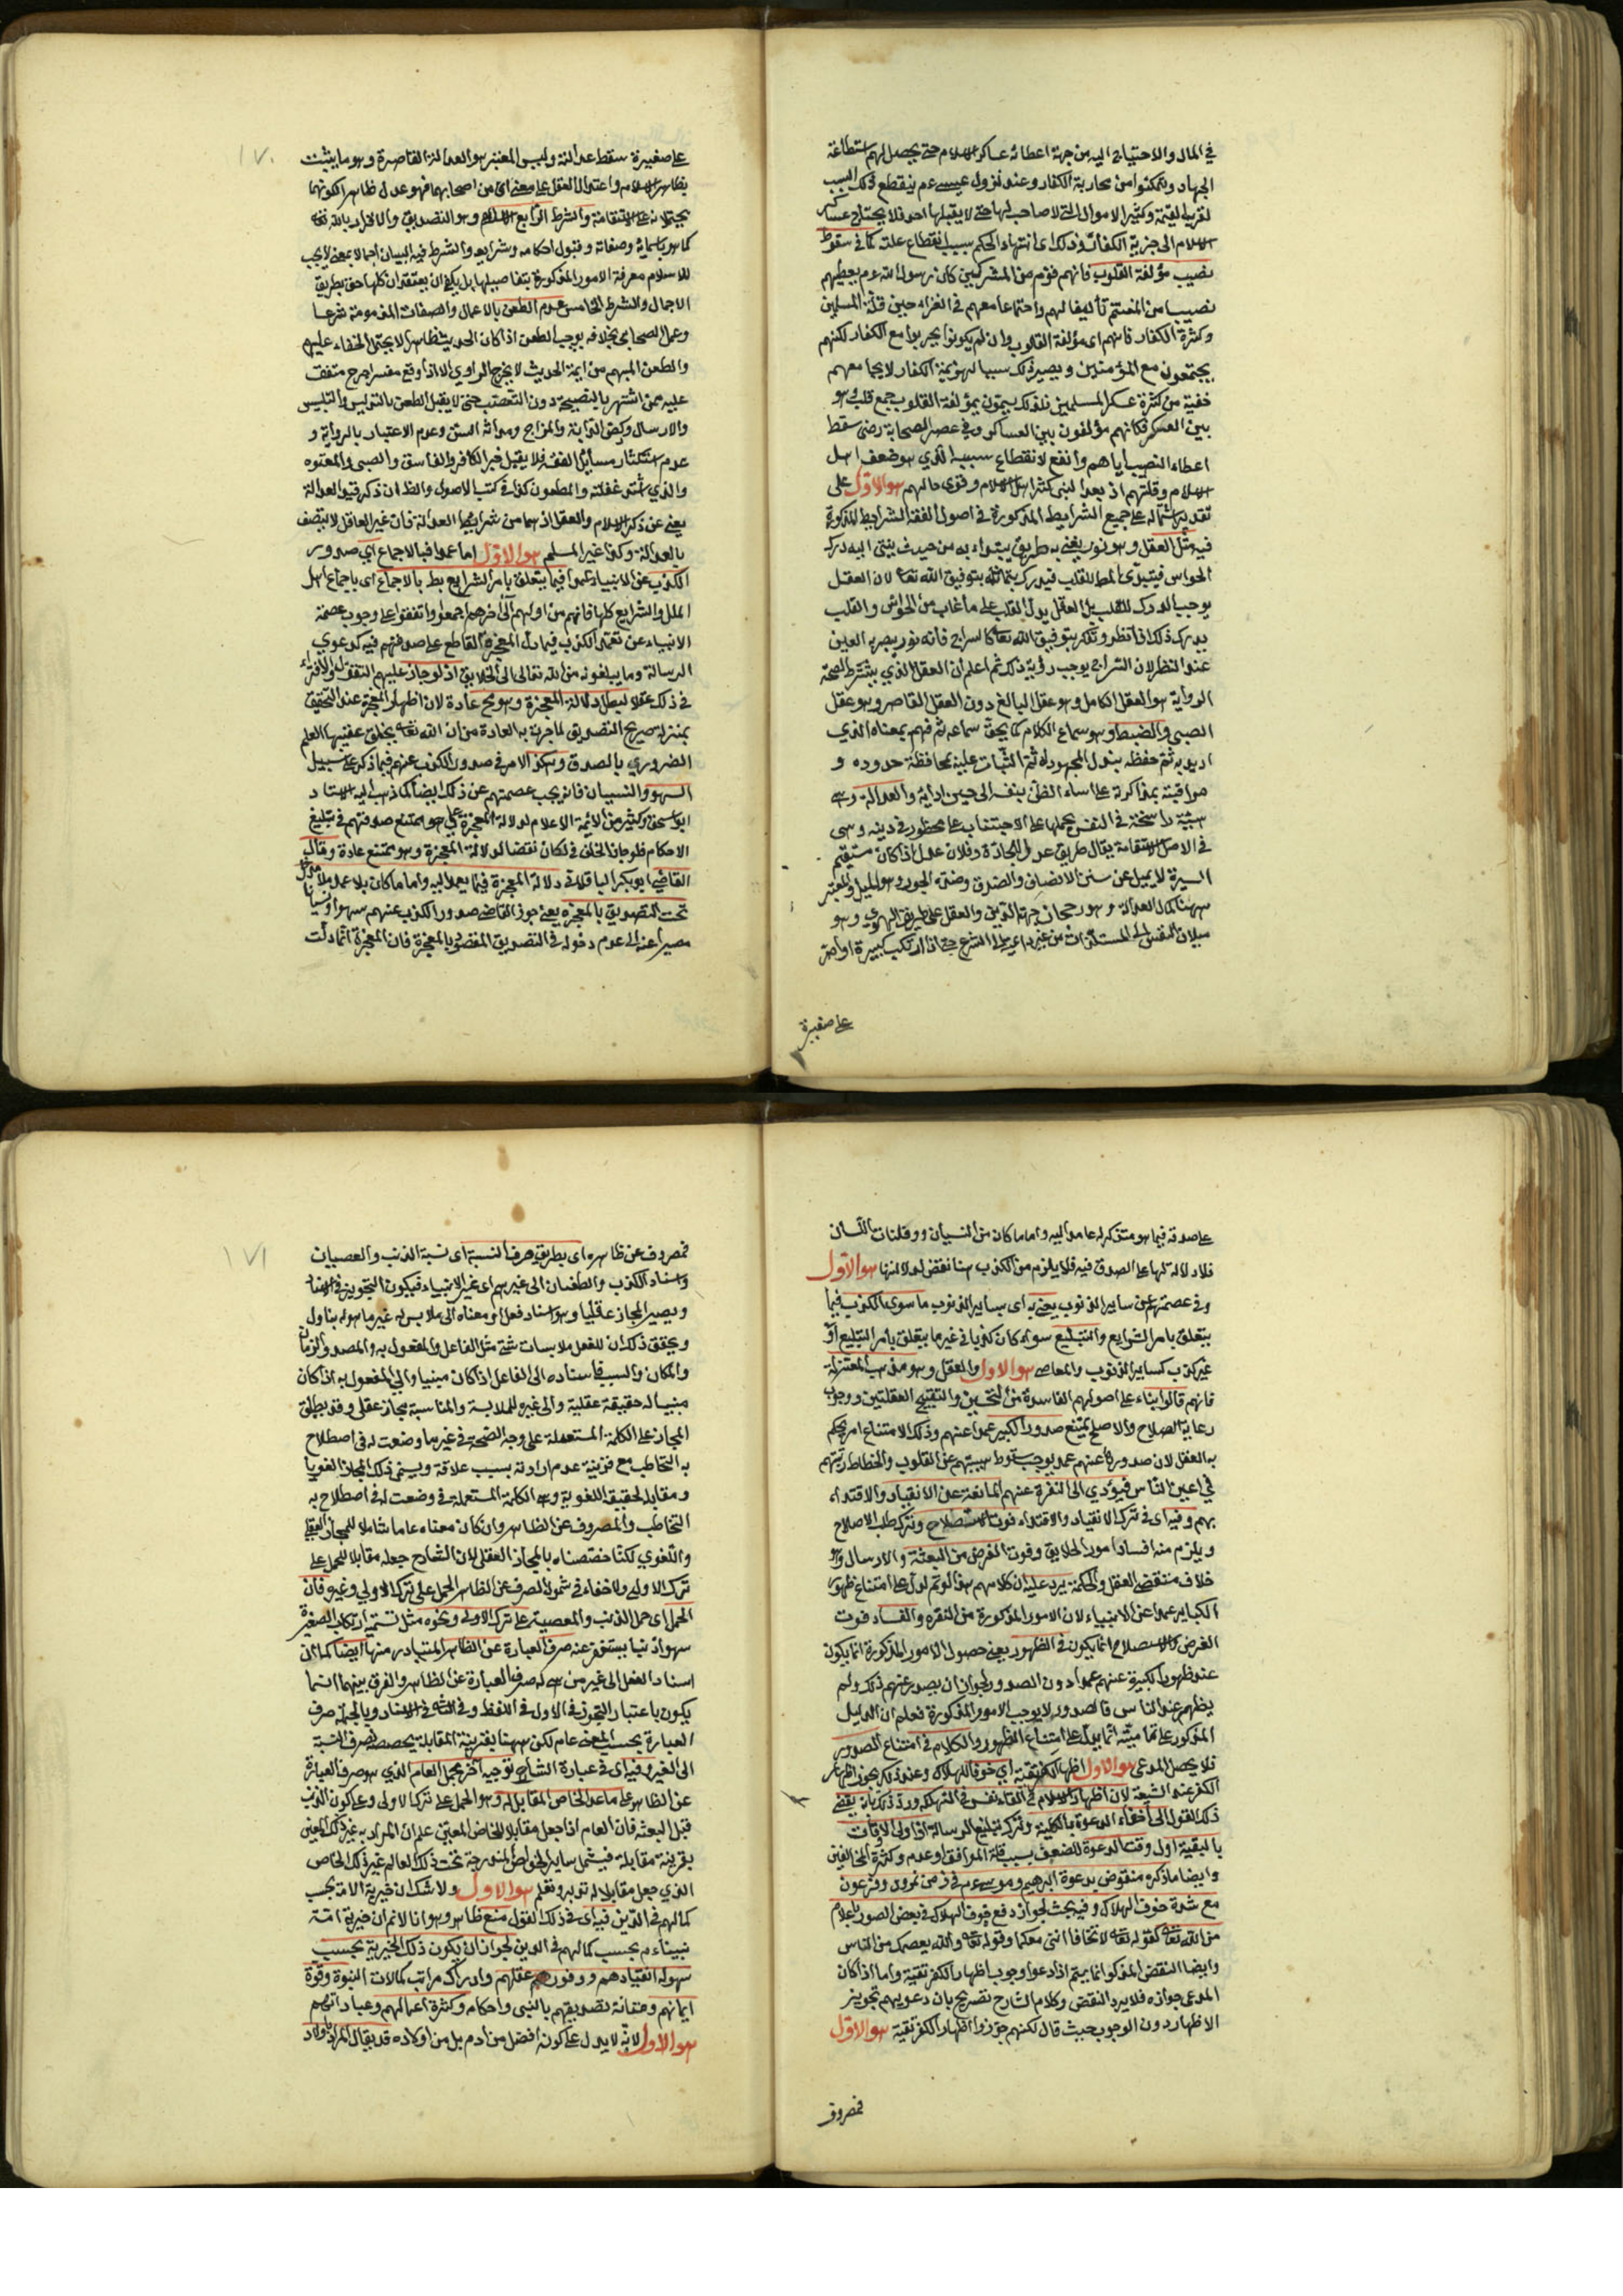 في المال والاحتياج اليه من جهة اعطائه عساكر الاسلام حتى يحصل لهم استطاعة
الجهاد ويتمكنوا من محاربة الكفار وعند نزول عيسى عم ينقطع ذلك السبب
لقرب القيمة وكثير الاموال التي لا صاحب لها حتى لا يقبلها احد فلا يحتاج عساكر
الاسلام الى جزية الكفار وذلك اى انتهاء الحكم بسبب انقطاع علته كما في سقوط
نصيب مؤلفة القلوب فانهم قوم من المشركين كان رسول الله عم يعطيهم
نصيبا من المغنم تأليفا لهم واجتماعا معهم في الغزاء حين قلة المسلمين
وكثرة الكفار فانهم اى مؤلفة القلوب وان لم يكونوا يحربوا مع الكفار لكنهم
يجتمعون مع المؤمنين ويصير ذلك سببا لهزيمة الكفار لا يجا معهم
خفية من كثرة عسكر المسلمين فلذلك يسمون بمؤلفة القلوب جمع قلب وهو
بين العسكر فكانهم مؤلفون بين العساكر وفي عصر الصحابة رضى سقط
اعطاء النصيب اياهم وانفع لانقطاع سببه الذي هو ضعف اهل
الاسلام وقلتهم اذ بعد النبى كثر اهل الاسلام وقوى حالهم هو الاول على
تقدير اشتماله على جميع الشرايط المذكورة في اصول الفقه الشرايط المذكورة
فيه مثل العقل وهو نور يضئ به طريق يبتداء به من حيث ينتهى اليه درك
الحواس فيتبدى المط للقلب فيدركه بتأمله بتوفيق الله تعا لان العقل
يوجب الدرك للقلب بل العقل يدل القلب على ما غاب من الحواس والقلب
يدرك ذلك اذا نظر وتفكر بتوفيق الله تعا كالسراج فانه نور يبصر به العين
عند النظر لان السراج يوجب رؤية ذلك ثم اعلم ان العقل الذي يشترط لصحة
الرواية هو العقل الكامل وهو عقل البالغ دون العقل القاصر وهو عقل
الصبى والضبط وهو سماع الكلام كما يحق سماعه ثم فهم بمعناه الذي
اريد به ثم حفظه ببذل المجهود له ثم الثبات عليه بمحافظة حدوده و
مراقبته بمذاكرته على اساءة الظن بنفسه الى حين ادائه والعدالة وهى
هيئة راسخة في النفس يحملها على الاجتناب عن محظور في دينه وهى
في الاصل الاستقامة يقال طريق عدل للجادة وفلان عدل اذا كان مستقيم
السيرة لا يميل عن سنن الانصاف والصدق وضده الجور وهو الميل والمعتبر
ههنا كمال العدالة وهو رجحان جهة الدين والعقل على طريق الهوى وهو
ميلان النفس الى المستلذات من غير داعية الشرع حتى اذا ارتكب كبيرة او اصر
على صغيرة
١٧٠
على صغيرة سقط عدالته وليس المعتبر هو العدالة القاصرة وهو ما يثبت
بظاهر الاسلام واعتدال العقل على معنى ان من اصحابهما فهو عدل ظاهرا لكونهما
يحملانه على الاستقامة والشرط الرابع الاسلام وهو التصديق والاقرار بالله تعا
كما هو باسمائه وصفاته وقبول احكامه وشرايعه والشرط فيه البيان اجمالا بمعنى لا يجب
للاسلام معرفة الامور المذكورة بتفاصيلها بل يكفى ان يعتقد ان كلها حق بطريق
الاجمال والشرط الخامس عدم الطعن بالاعمال والصفات المذمومة شرعا
وعمل الصحابى بخلافه يوجب الطعن اذا كان الحديث ظاهرا لا يحتمل الخفاء عليهم
والطعن المبهم من ايمة الحديث لا يخرج الراوي الا اذا وقع مفسرا بجرح متفق
عليه ممن اشتهر بالنصيحة دون التعصب حتى لا يقبل الطعن بالتدليس والتلبيس
والارسال وركض الدابة والمزاح وحداثة السن وعدم الاعتبار بالرواية و
عدم استكثار مسائل الفقه فلا يقبل خبر الكافر والفاسق والصبى والمعتوه
والذي اشتد غفلته والمطعون كذا في كتب الاصول والظ ان ذكر قيد العدالة
يغنى عن ذكر الاسلام والعقل اذ هما من شرايط العدالة فان غير العاقل لا يتصف
بالعدالة وكذا غير المسلم هو الاول اما عمدا فبالاجماع اي صدور
الكذب عن الانبياء عمدا فيما يتعلق بامر الشرايع بط بالاجماع اى باجماع اهل
الملل والشرايع كلها فانهم من اولهم الى اخرهم اجمعوا واتفقوا على وجوب عصمة
الانبياء عن تعمد الكذب فيما دل المعجزة القاطع على صدقهم فيه كدعوى
الرسالة وما يبلغونه من الله تعالى الى الخلايق اذ لو جاز عليهم التقول والافتراء
في ذلك عقلا لبطل دلالة المعجزة وهو مح عادة لان اظهار المعجزة عند التحقيق
بمنزلة صريح التصديق لما جرت به العادة من ان الله تعا يخلق عقيبها العلم
الضروري بالصدق وهكذا الامر في صدور الكذب عنهم فيما ذكر على سبيل
السهو والنسيان فانه يجب عصمتهم عن ذلك ايضا كما ذهب اليه الاستاد
ابو اسحق وكثير من الائمة الاعلام لدلالة المعجزة على هو ممتنع صدقهم في تبليغ
الاحكام فلو جاز الخلف في ذلك لكان نقضا لدلالة المعجزة وهو ممتنع عادة وقال
القاضى ابو بكر الباقلاني دلالة المعجزة فيما يعمد اليه واما ما كان بلا عمد فلا مدخل
تحت التصديق بالمعجزة يعنى جوز القاضى صدور الكذب عنهم سهوا ونسيانا
مصيرا عنه الى عدم دخوله في التصديق المقصود بالمعجزة فان المعجزة انما دلت
على صدقه فيما هو متذكر له عامد اليه واما ما كان من النسيان وفلتات اللسان
فلا دلالة لها على الصدق فيه فلا يلزم من الكذب هنا نقض لدلالتها هو الاول
وفي عصمتهم عن ساير الذنوب يعنى به اى بساير الذنوب ما سوى الكذب فيما
يتعلق بامر الشرايع والتبليغ سواء كان كذبا في غير ما يتعلق بامر التبليغ او
غير كذب كساير الذنوب والمعاصى هو الاول والعقل وهو مذهب المعتزلة
فانهم قالوا بناء على اصولهم الفاسدة من التحسين والتقبيح العقلتين ووجوب
رعاية الصلاح والاصلح يمتنع صدور الكبير عمدا عنهم وذلك الامتناع امر يحكم
به العقل لان صدورها عنهم عمدا يوجب سقوط هيبتهم عن القلوب وانحطاط رتبتهم
في اعين الناس فيؤدي الى النفرة عنهم المانعة عن الانقياد والاقتداء
بهم وفيه اى في ترك الانقياد والاقتداء فوت الاستصلاح وترك طلب الاصلاح
ويلزم منه افساد امور الخلايق وفوت الغرض من البعثة والارسال وهو
خلاف مقتضى العقل والحكمة يرد عليه ان كلامهم هذا لو تم لدل على امتناع ظهور
الكباير عمدا عن الانبياء لان الامور المذكورة من النفره والفساد فوت
الغرض كالاستصلاح انما يكون في الظهور يعنى حصول الامور المذكورة انما يكون
عند ظهور الكبيرة عنهم عمدا دون الصدور لجواز ان يصدر عنهم ذلك ولم
يظهر عند الناس فالصدور لا يوجب الامور المذكورة فعلم ان الدليل
المذكور على تماميته انما يدل على امتناع الظهور والكلام في امتناع الصدور
فلا يحصل المدعى هو الاول اظهار الكفر تقية اي خوفا للهلاك وعند ذلك يجوز اظهار
الكفر عند الشيعة لان اظهار الاسلام ح القاء نفس في التهلكة ورد ذلك بانه يفضى
ذلك القول الى اخفاء الدعوة بالكلية وترك تبليغ الرسالة اذ اولى الاوقات
بالتقية اول وقت الدعوة للضعف بسبب قلة الموافق او عدمه وكثرة المخالفين
وايضا ما ذكره منقوض بدعوة ابرهيم وموسى عم في زمن نمرود وفرعون
مع شدة خوف الهلاك وفيه بحث لجواز دفع خوف الهلاك في بعض الصور باعلام
من الله تعا كقوله تعا لا تخافا اننى معكما وقوله تعا والله يعصمك من الناس
وايضا النقض المذكور انما يتم اذا دعوا وجوب اظهار الكفر تقية واما اذا كان
المدعى جوازه فلا يرد النقض وكلام الشارح تصريح بان دعويهم تجويز
الاظهار دون الوجوب حيث قال لكنهم جوزوا اظهار الكفر تقية هو الاول
فمصروف
١٧١
فمصروف عن ظاهره اى بطريق صرف النسبة اى نسبة الذنب والعصيان
واسناد الكذب والطغيان الى غيرهم اى غير الانبياء فيكون التجويز في الاسناد
ويصير المجاز عقليا وهو اسناد فعل او معناه الى ملابس له غير ما هو له بتاول
وتحقق ذلك ان للفعل ملابسات شتى مثل الفاعل والمفعول به والمصدر والزمان
والمكان والسبب فاسناده الى الفاعل اذا كان مبنيا والى المفعول به اذا كان
مبنيا له حقيقة عقلية والى غيره للملابسة والمناسبة مجاز عقلى وقد يطلق
المجاز على الكلمة المستعملة على وجه الصحة في غير ما وضعت له في اصطلاح
به التخاطب مع قرينة عدم ارادته بسبب علاقة ويسمى ذلك المجاز لغويا
ومقابله الحقيقة اللغوية وهى الكلمة المستعملة في وضعت له في اصطلاح به
التخاطب والمصروف عن الظاهر وان كان معناه عاما شاملا للمجاز العقلي
واللغوي لكنا خصصناه بالمجاز العقلى لان الشارح جعله مقابلا للحمل على
ترك الاولى ولا خفاء في شمول الصرف عن الظاهر الحمل على ترك الاولى وغيره فان
الحمل اى حمل الذنب والمعصية على ترك الاولى ونحوه مثل تسمية ارتكاب الصغيرة
سهوا ذنبا يستغفر عنه صرف العبارة عن الظاهر المتبادر منها ايضا كما ان
اسناد الفعل الى غير من هو له صرف العبارة عن الظاهر والفرق بينهما انما
يكون باعتبار التجوز في الاول في اللفظ وفي الثانى في الاسناد وبالجملة صرف
العبارة بحسب المعنى عام لكن ههنا بقرينة المقابلة يخصص لصرف النسبة
الى الغير وفيه اى في عبارة الشارح توجيه اخر بحمل العام الذي هو صرف العبارة
عن الظاهر على ما عدا الخاص المقابل له وهو الحمل على ترك الاولى وعلى كون الذنب
قبل البعثه فان العام اذا جعل مقابلا للخاص المعين علم ان المراد به غير ذلك المعين
بقرينة مقابلة فيشمل ساير الخواص المندرجة تحت ذلك العالم غير ذلك الخاص
الذي جعل مقابلا له تدبر وتعلم هو الاول ولا شك ان خيرية الامة بحسب
كمالهم في الدين فيه اى في ذلك القول منع ظاهر وهو انا لا نم ان خيرية امة
نبينا عم بحسب كمالهم في الدين لجواز ان يكون ذلك الخيرية بحسب
سهولة انقيادهم ووفور عقلهم وادراك مراتب كمالات النبوة وقوة
ايمانهم وصفانة تصديقهم بالنبى واحكامه وكثرة اعمالهم وعباداتهم
هو الاول لانه لا يدل على كونه افضل من ادم بل من اولاده قد يقال المراد باولاد